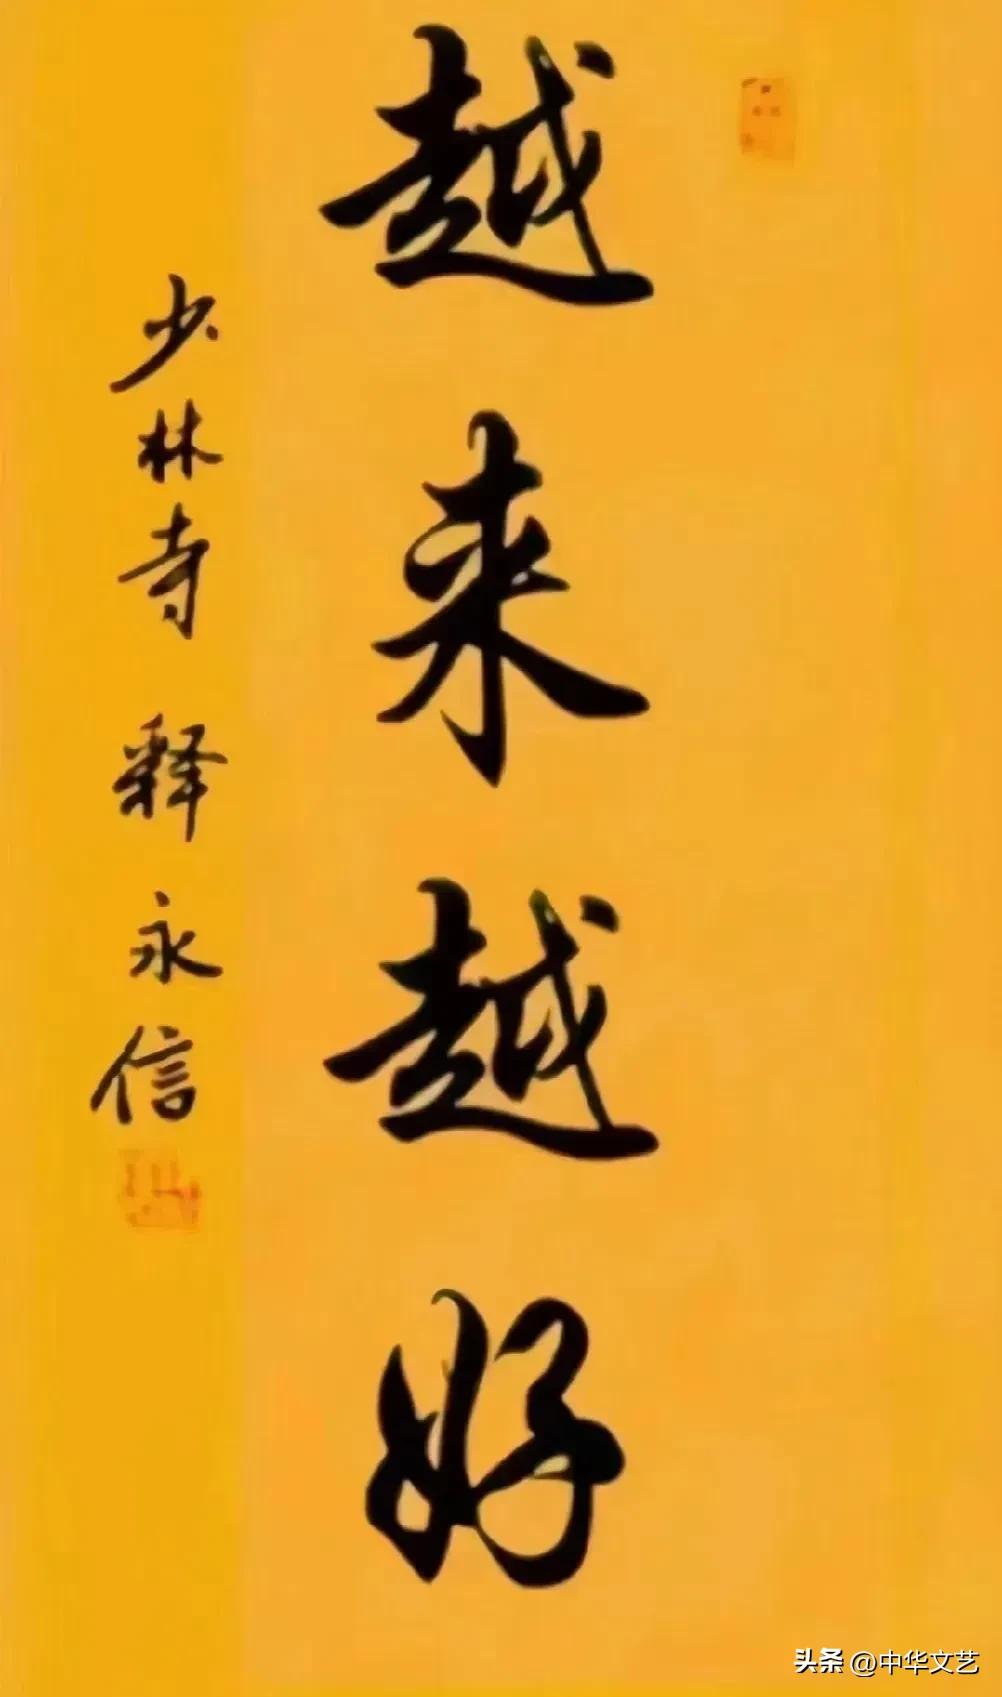 越来越好
少林寺 释永信
头条 @中华文艺